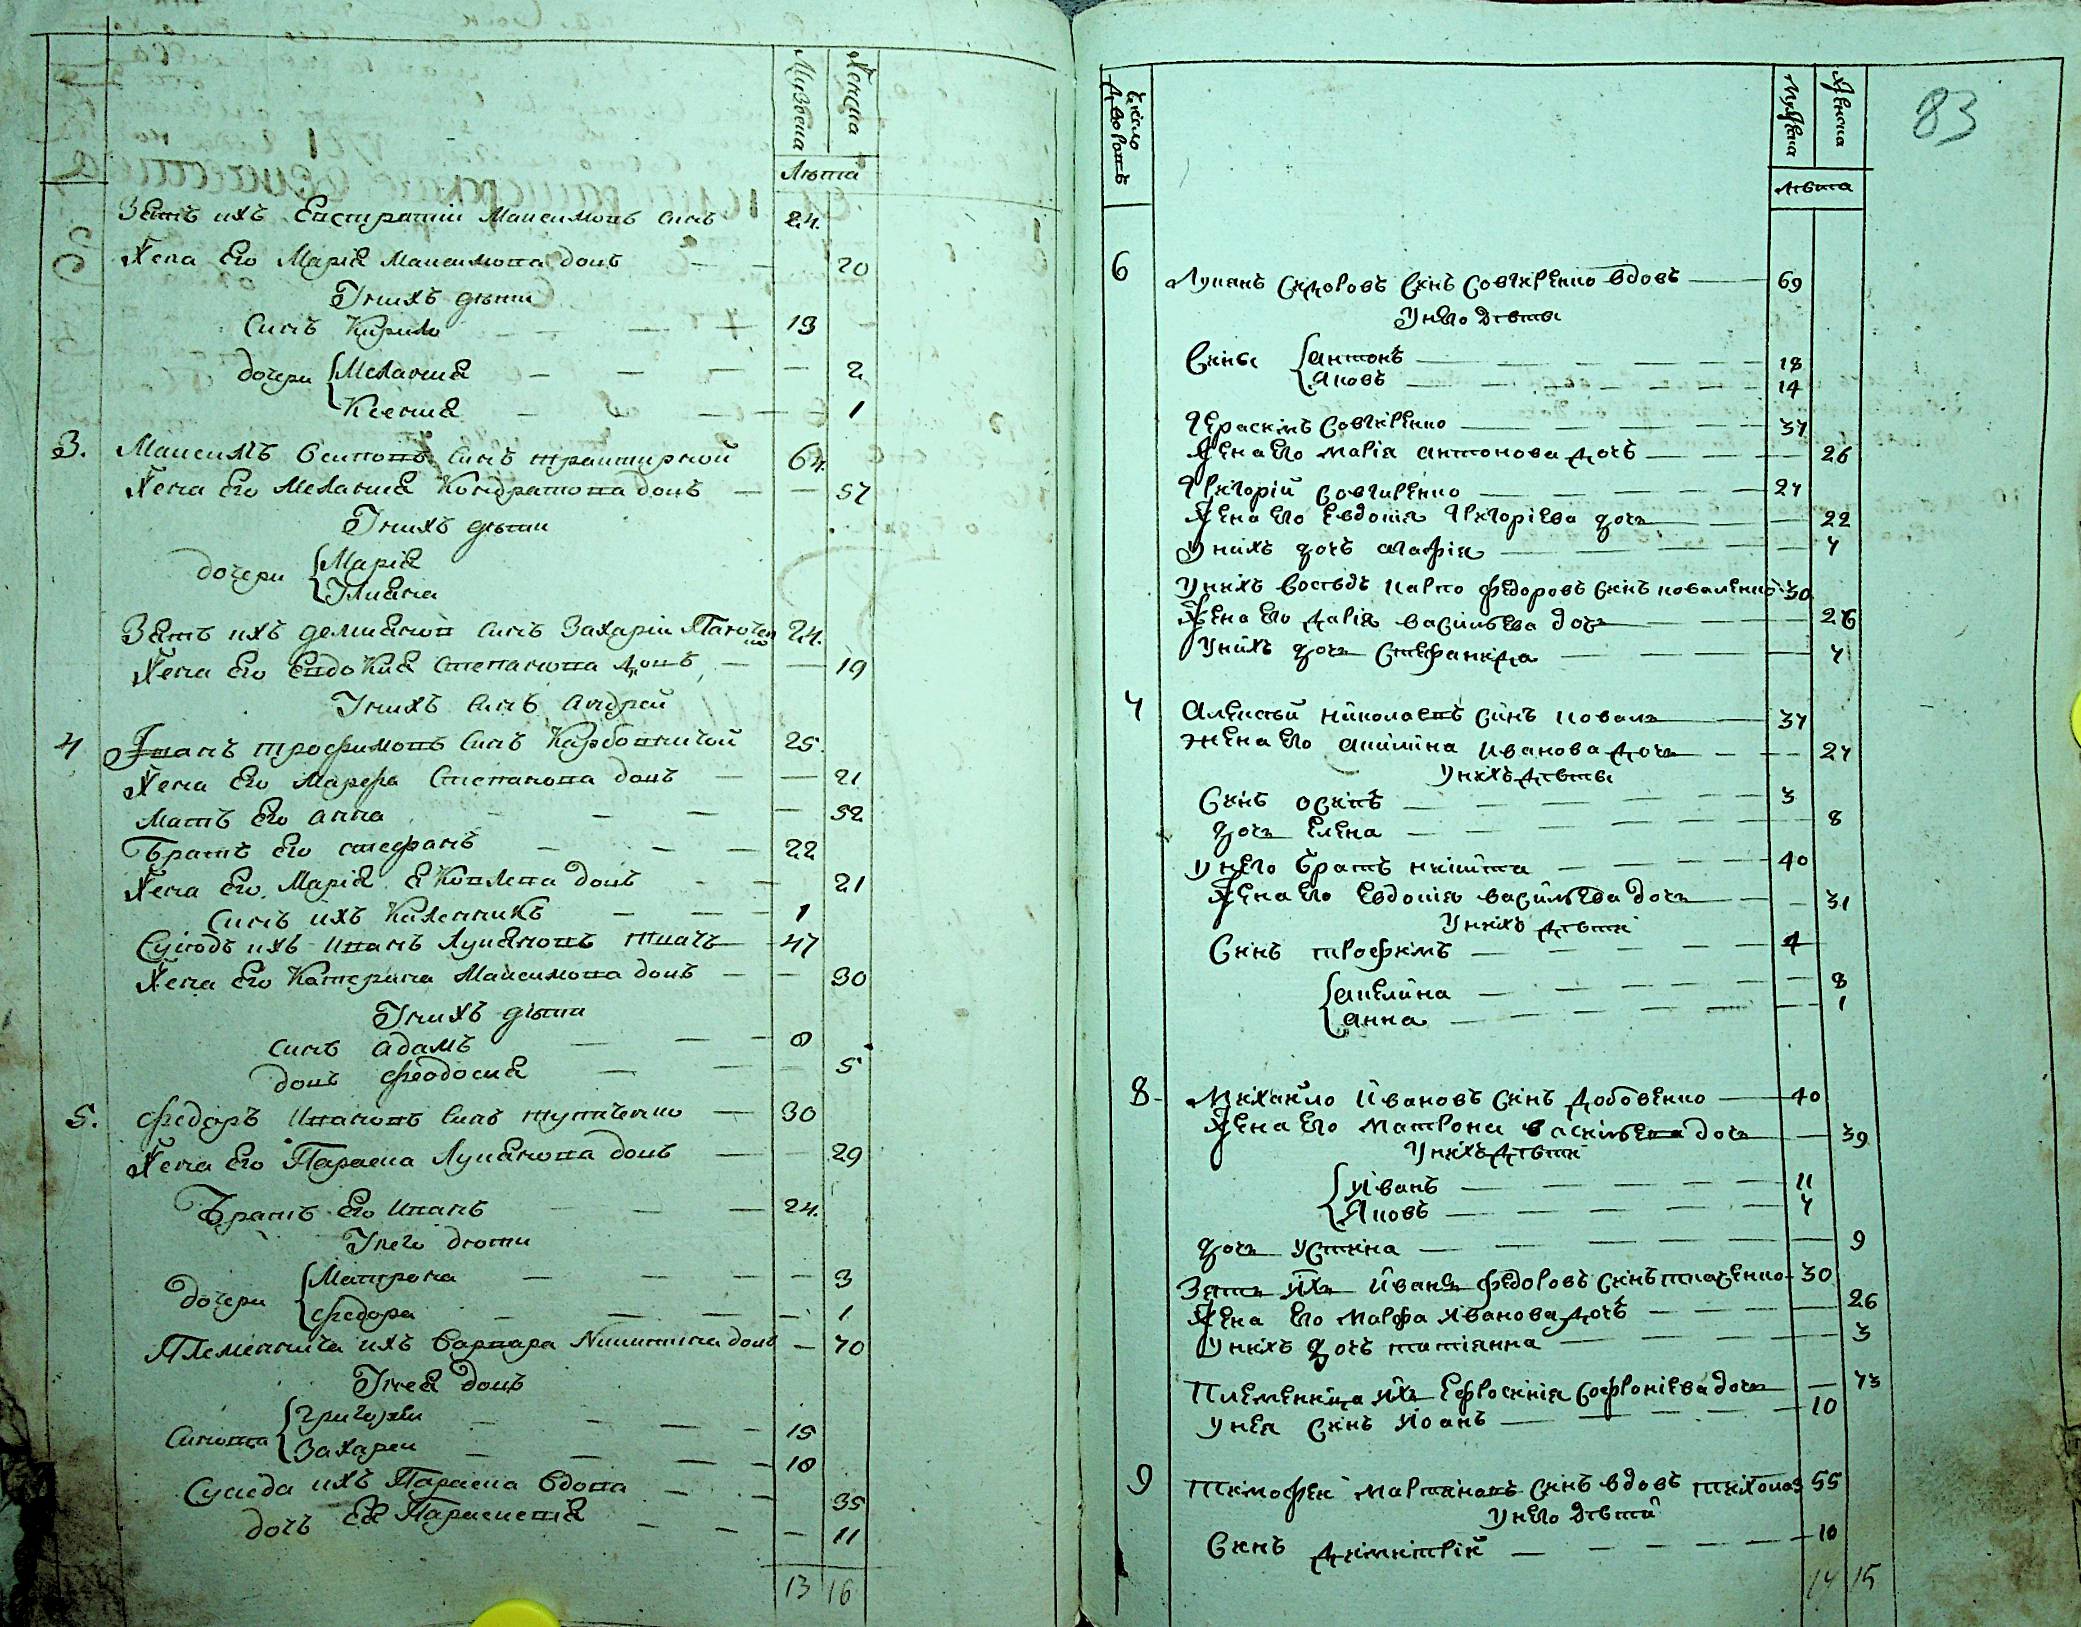 Мужеска
Женска
Лѣта
Зять ихъ Евстратий Максимовъ синъ 24.
Жена Его Марія Максимова дочь 20
У нихъ дѣти
Синъ Кирило 13
дочери Мелания 2
Ксения 1
3. Максимъ Осиповъ синъ 64.
Жена Его Мелания Кондратова дочь 57
У нихъ дѣти
дочери Марія
Улияна
Зять ихъ демияновъ синъ Захарій 24.
Жена Его Евдокия Степанова дочь 19
У нихъ синъ андрей
4 Иванъ трофимовъ синъ 25.
Жена Его Марфа Степанова дочь 21
Мать Его анна 52
Братъ Его стефанъ 22
Жена Его Марія Яковлева дочь 21
Синъ ихъ Каленникъ 1
Сусѣдъ ихъ Иванъ Лукяновъ ткачъ 47
Жена Его Катерина Максимова дочь 30
У нихъ дѣти
синъ адамъ 8
дочь феодосия 5
5. Федоръ Ивановъ синъ 30
Жена Его Параска Лукянова дочь 29
Братъ Его Иванъ 24.
У него дѣти
дочери Матрона 3
Федора 1
Племѣнница ихъ Варвара Никитина дочь 70
У нея
Синова Григорий 15
Захарей 10
Сусѣда ихъ Параска вдова 35
дочь Ея 11
13 16
Число дворовъ
Мужеска
Женска
лѣта
83
6 Лукянъ Сидоровъ синъ Совгиренко вдовъ 69
У него дѣты
Сины антонъ 18
Яковъ 14
Герасимъ Совгиренко 37
Жена Его Марія антонова дочь 26
Григорій Совгиренко 27
Жена Его Евдокія Григоріева дочь 22
У нихъ дочь агафія 7
У нихъ сосѣдъ карпо федоровъ синъ коваленко 30
Жена Его Дарія василѣва дочь 26
У нихъ дочь Стефанида 7
7 Алексѣй николаевъ синъ коваль 37
жена его акилина иванова дочь 27
У нихъ дѣты
Синъ осипъ 3
дочь Елена 8
У него братъ никита 40
Жена Его Евдокія василѣва дочь 31
У нихъ дѣти
Синъ трофимъ 4
акелина 8
анна 1
8 Михайло Ивановъ синъ Довбенко 40
Жена Его Матрона василѣва дочь 39
У нихъ дѣти
Иванъ 11
Яковъ 7
дочь Устина 9
Зять ихъ Иванъ федоровъ синъ ткаченко 30
Жена Его Марфа Иванова дочь 26
У нихъ дочь татіянна 3
Племенница ихъ Ефросинія Софроніева дочь 73
У нея синъ Иоанъ 10
9 Тимофей Мартиновъ синъ вдовъ 55
У него дѣти
Синъ Димитрій 10
14 15